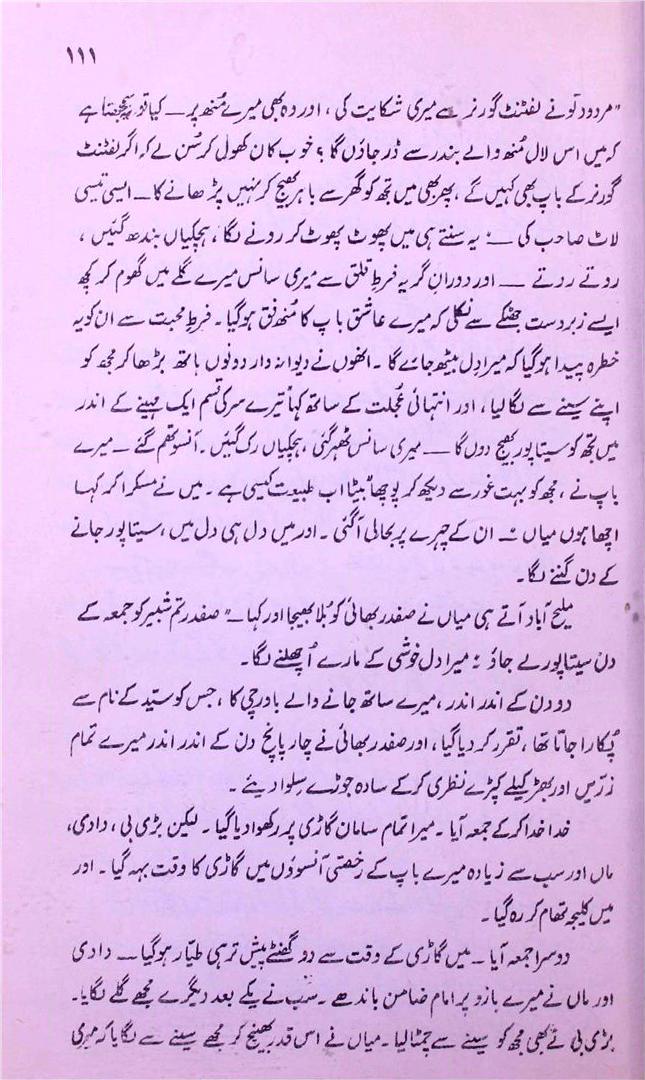 ۱۱۱
"مردود تو نے لفٹنٹ گورنر سے میری شکایت کی، اور وہ بھی میرے مُنھ پر — کیا تو یہ سمجھتا ہے
کہ میں اس لال مُنھ والے بندر سے ڈر جاؤں گا؟ خوب کان کھول کر سُن لے کہ اگر لفٹنٹ
گورنر کے باپ بھی کہیں گے، پھر بھی میں تجھ کو گھر سے باہر بھیج کر نہیں پڑھانے کا — ایسی تیسی
لاٹ صاحب کی — " یہ سنتے ہی میں پھوٹ پھوٹ کر رونے لگا، ہچکیاں بندھ گئیں،
روتے روتے — اور دورانِ گریہ فرطِ قلق سے میری سانس میرے گلے میں گھوم کر کچھ
ایسے زبردست جھٹکے سے نکلی کہ میرے عاشق باپ کا مُنھ فق ہو گیا۔ فرطِ محبت سے ان کو یہ
خطرہ پیدا ہو گیا کہ میرا دل بیٹھ جائے گا۔ انھوں نے دیوانہ وار دونوں ہاتھ بڑھا کر مجھ کو
اپنے سینے سے لگا لیا، اور انتہائی عُجلت کے ساتھ کہا "تیرے سر کی قسم ایک مہینے کے اندر
میں تجھ کو سیتاپور بھیج دوں گا — میری سانس ٹھہر گئی، ہچکیاں رک گئیں۔ آنسو تھم گئے — میرے
باپ نے، مجھ کو بہت غور سے دیکھ کر پوچھا "بیٹا اب طبیعت کیسی ہے۔ میں نے مسکرا کر کہا
اچھا ہوں میاں " — ان کے چہرے پر بحالی آ گئی۔ اور میں دل ہی دل میں، سیتاپور جانے
کے دن گننے لگا۔
ملیح آباد آتے ہی میاں نے صفدر بھائی کو بُلا بھیجا اور کہا — "صفدر تم شبیر کو جمعہ کے
دن سیتاپور لے جاؤ " میرا دل خوشی کے مارے اُچھلنے لگا۔
دو دن کے اندر اندر، میرے ساتھ جانے والے باورچی کا، جس کو سیّد کے نام سے
پُکارا جاتا تھا، تقرر کر دیا گیا، اور صفدر بھائی نے چار پانچ دن کے اندر اندر میرے تمام
زرّیں اور بھڑکیلے کپڑے نظری کر کے سادہ جوڑے سِلوا دیئے۔
خدا خدا کر کے جمعہ آیا۔ میرا تمام سامان گاڑی پر رکھوا دیا گیا۔ لیکن بڑی بی، دادی،
ماں اور سب سے زیادہ میرے باپ کے رخصتی آنسوؤں میں گاڑی کا وقت بہہ گیا۔ اور
میں کلیجہ تھام کر رہ گیا۔
دوسرا جمعہ آیا — میں گاڑی کے وقت سے دو گھنٹے پیش تر ہی طیّار ہو گیا — دادی
اور ماں نے میرے بازو پر امام ضامن باندھے۔ سب نے یکے بعد دیگرے مجھے گلے لگایا۔
بڑی بی نے بھی مجھ کو سینے سے چمٹا لیا۔ میاں نے اس قدر بھینچ کر مجھے سینے سے لگایا کہ میری